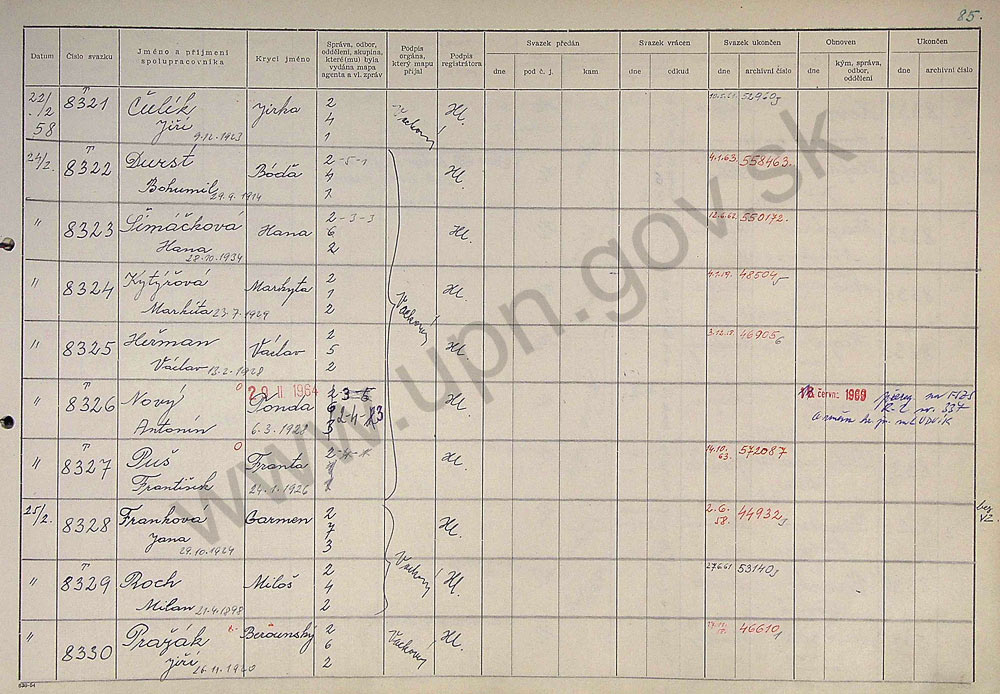 85.
Datum Číslo svazku Jméno a příjmení spolupracovníka Krycí jméno Správa, odbor, oddělení, skupina, které(mu) byla vydána mapa agenta a vl. zpráv Podpis orgána, který mapu přijal Podpis registrátora Svazek předán Svazek vrácen Svazek ukončen Obnoven Ukončen
dne pod č. j. kam dne odkud dne archivní číslo dne kým, správa, odbor, oddělení dne archivní číslo
22/2 58 T 8321 Čulík Jirka 2 4 1 Vackový Hl. 52960
Jiří 9.12.1923
24/2. T 8322 Durst Bóďa 2-5-1 4 1 Hl. 4.1.63. 558463.
Bohumil 29.9.1914
" 8323 Šimáčková Hana 2-3-3 6 2 Hl. 12.6.62. 550172.
Hana 28.10.1934
" T 8324 Kytýřová Markyta 2 1 2 Vackový Hl. 48504
Markéta 23.7.1929
" T 8325 Heřman Václav 2 5 2 Hl. 46905
Václav 13.2.1928
" T 8326 Nový 20 II 1964 Tonda 2 6 3 Hl. června 1969
Antonín 6.3.1928 2-4-
" T 8327 Puš Franta 2-4- Hl. 14.10.63. 572087
František 24.1.1926
25/2. T 8328 Franková Carmen 2 7 3 Hl. 2.6.58. 44932 bez VZ
Jana 29.10.1924
" T 8329 Roch Miloš 2 4 2 Vackový Hl. 27.6.61 53140
Milan 21.4.1898
" 8330 Pražák Berounský 2 6 2 Vackový Hl. 46610
Jiří 26.11.1920
www.upn.gov.sk